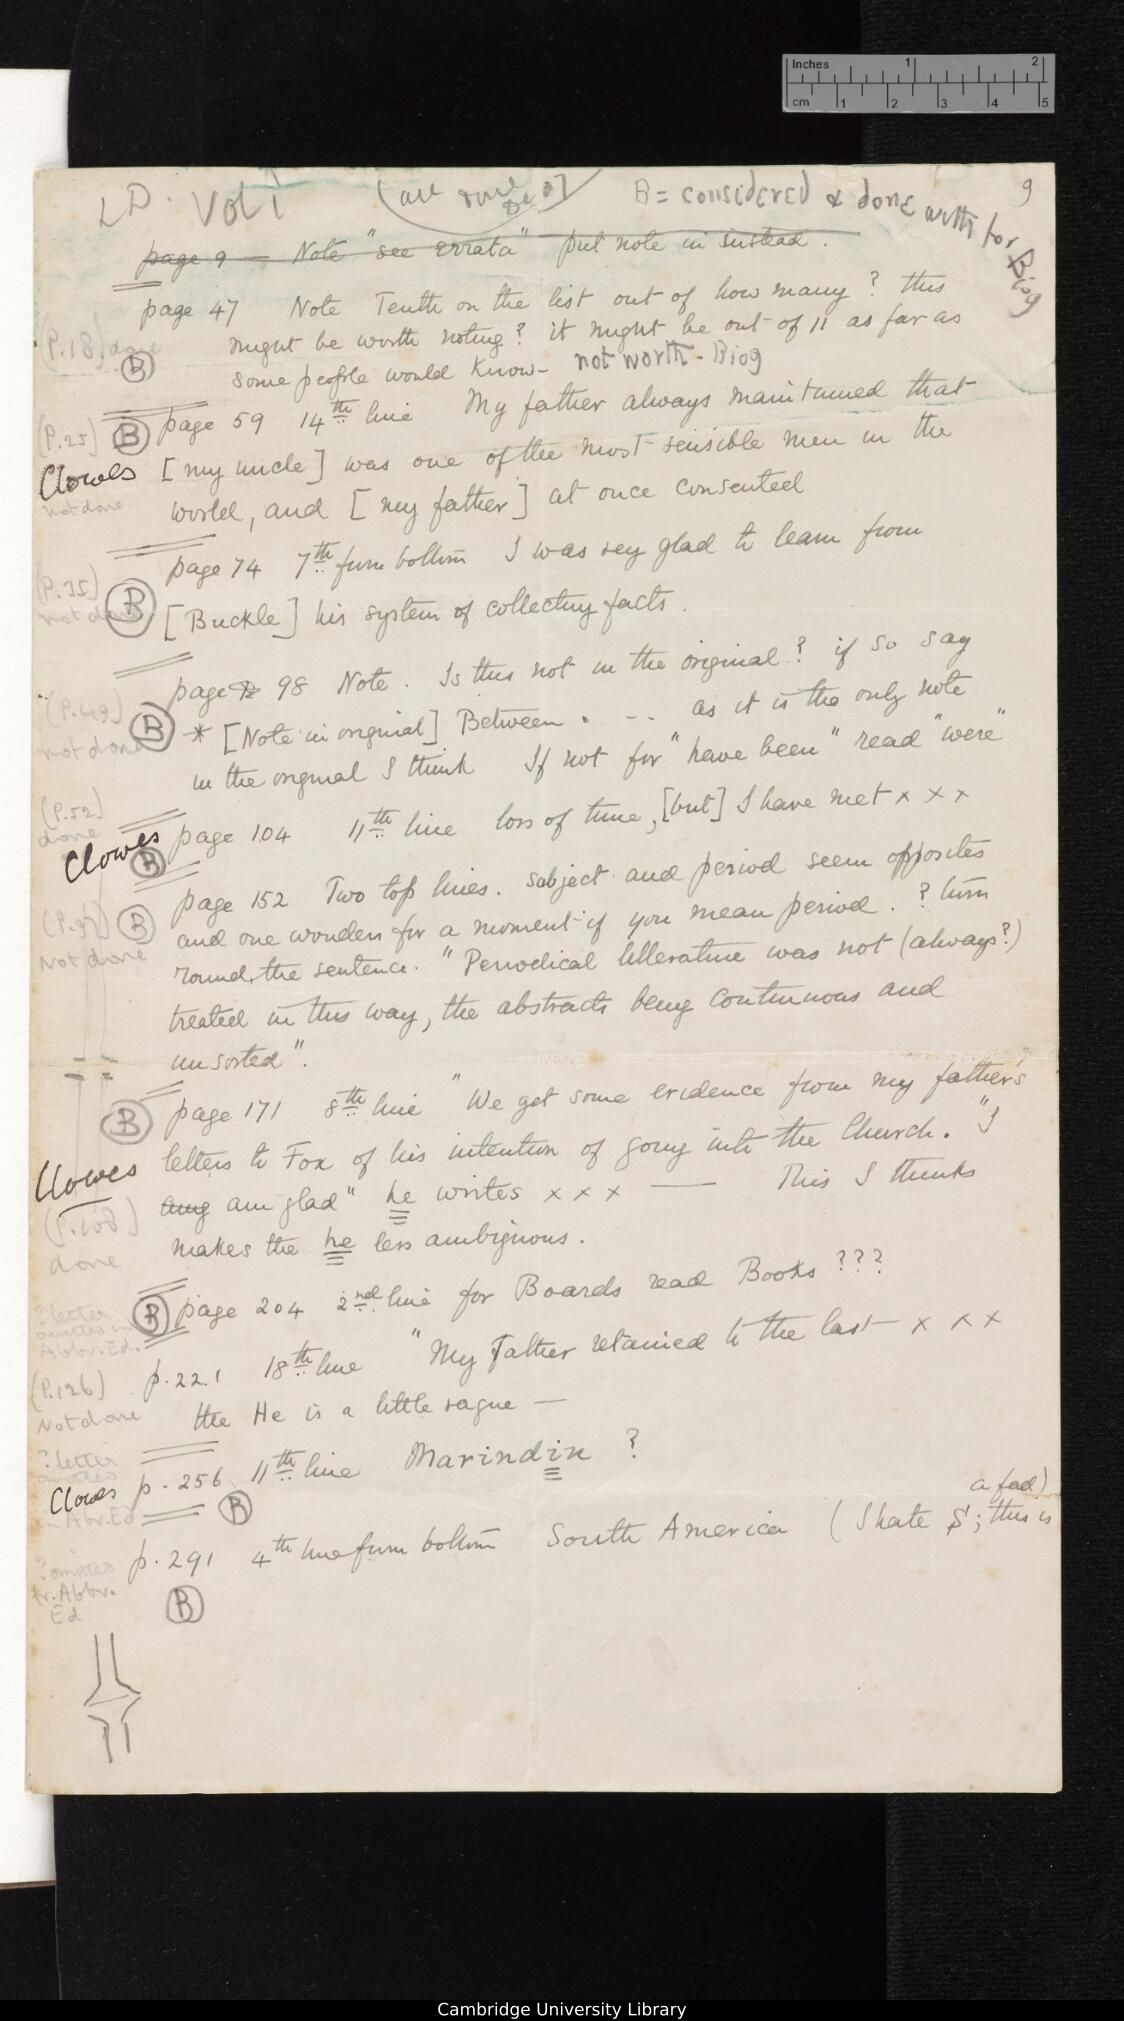 Inches 1 2
cm 1 2 3 4 5
LD. Vol I (all done B = considered & done with for Biog 9
page 9 — Note "see errata" put note in instead.
page 47 Note Tenth on the list out of how many? this
(P.18) done
might be worth noting? it might be out of 11 as far as
B some people would know - not worth - Biog
(P.25) B page 59 14th line My father always maintained that
Clowes [my uncle] was one of the most sensible men in the
not done
world, and [my father] at once consented
page 74 7th from bottom I was very glad to learn from
(P.35)
not done B [Buckle] his system of collecting facts.
page 98 Note. Is this not in the original? if so say
(P.49)
not done B * [Note in original] Between . -- as it is the only note
in the original I think If not for "have been" read "were"
(P.52)
done
Clowes B page 104 11th line loss of time, [but] I have met x x x
page 152 Two top lines. subject and period seem opposites
B and one wonders for a moment if you mean period. ? turn
Not done round the sentence. "Periodical litterature was not (always?)
treated in this way, the abstracts being continuous and
unsorted".
B page 171 8th line "We get some evidence from my father's
Clowes letters to Fox of his intention of going into the Church. "I
(P.108) am glad" he writes x x x — This I thinks
done makes the he less ambiguous.
B page 204 2nd line for Boards read Books ???
? letter
omitted in
Abbr. Ed.
p. 221 18th line "My Father retained to the last x x x
(P.126)
Not done the He is a little vague —
? letter
omitted
Clowes p. 256 11th line Marindin ?
Abr. Ed B
a fad)
p. 291 4th line from bottom South America (I hate S; this is
? omitted
fr. Abbr.
Ed. B
Cambridge University Library